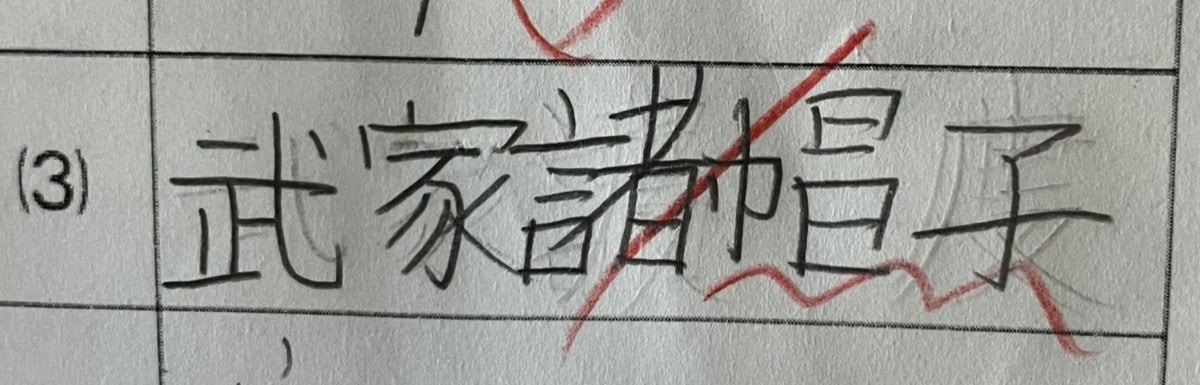 (3) 武家諸帽子